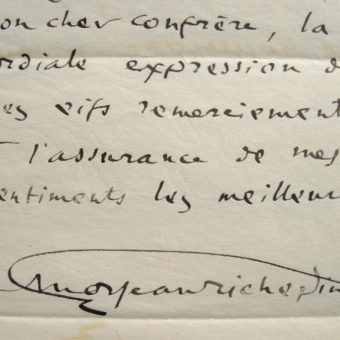 on cher confrère, la
rdiale expression d
es vifs remerciement
l'assurance de mes
entiments les meilleu
Jean Richepin